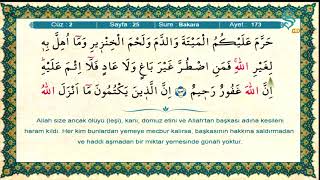 Cüz : 2 Sayfa : 25 Sure : Bakara Ayet : 173
حَرَّمَ عَلَيْكُمُ الْمَيْتَةَ وَالدَّمَ وَلَحْمَ الْخِنْزِيرِ وَمَٓا اُهِلَّ بِهِ
لِغَيْرِ اللّٰهِۚ فَمَنِ اضْطُرَّ غَيْرَ بَاغٍ وَلَا عَادٍ فَلَٓا اِثْمَ عَلَيْهِۜ
اِنَّ اللّٰهَ غَفُورٌ رَح۪يمٌ اِنَّ الَّذ۪ينَ يَكْتُمُونَ مَٓا اَنْزَلَ اللّٰهُ
Allah size ancak ölüyü (leşi), kanı, domuz etini ve Allah'tan başkası adına kesileni
haram kıldı. Her kim bunlardan yemeye mecbur kalırsa, başkasının hakkına saldırmadan
ve haddi aşmadan bir miktar yemesinde günah yoktur.